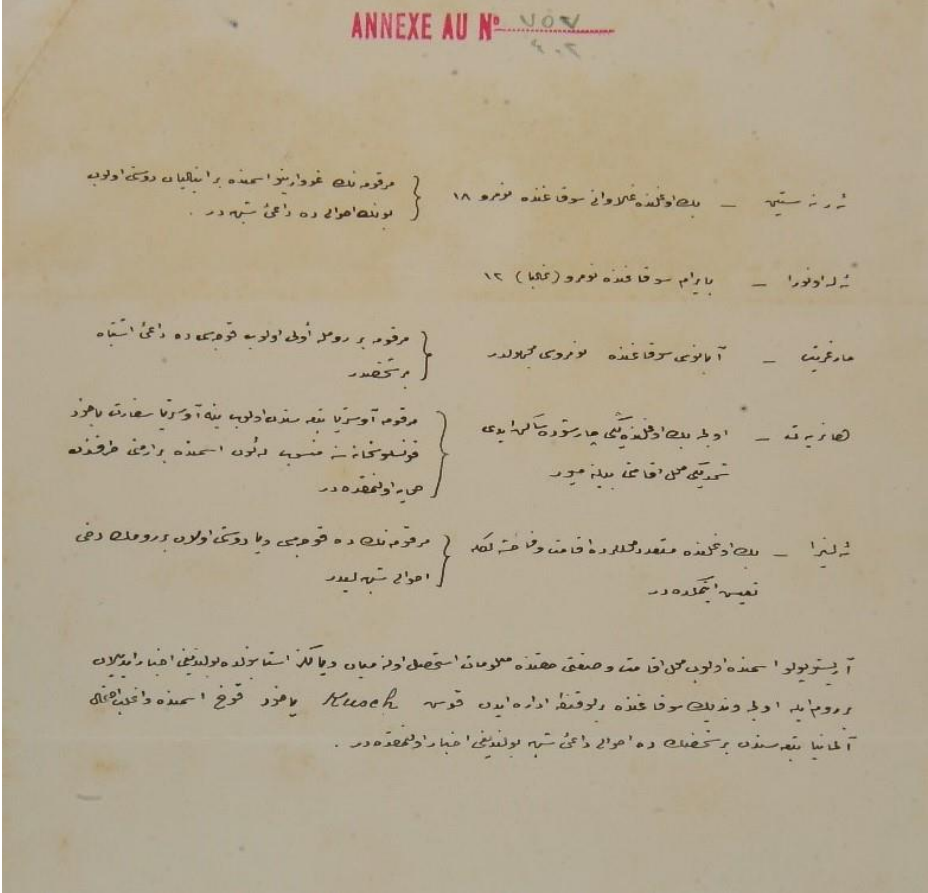 ANNEXE AU Nº ٧٥٧
٢٠٤
ئه رنه ستين — بك اوغلنده غلاوانى سوقاغنده نومرو ١٨ { مرقومه نك غووارينو اسمنده بر ايتاليان دوستى اولوب
بونك احوالى ده داعئ شبهه در .
ئه له اونورا — بايرام سوقاغنده نومرو (غالبا) ١٢
مارغريت — آبانوس سوقاغنده نومروسى مجهولدر { مرقومه بر روملە أولى اولوب قوجه سى ده داعئ اشتباه
بر شخصدر
هانريه ت — اولجه بك اوغلنده يكى چارشوده ساكن ايدى
شمديكى محل اقامتى بيلنه ميور { مرقومه آوستريا تبعه سندن اولوب ينه آوستريا سفارت ياخود
قونسلوسخانه سنه منسوب له ئون اسمنده بر ارمنى طرفندن
حمايه اولنمقده در
ئه ليزا — بك اوغلنده متعدد محللرده اقامت و فاحشه لكله
تعيش ايتمكده در { مرقومه نك ده قوجه سى ويا دوستى اولان بر رومك دخى
احوالى شبهه ليدر
آريستوپولو اسمنده اولوب محل اقامت و صنعتى حقنده معلومات استحصال اولنه ميان ويالكز استانبولده بولنديغى اخبار ايديلان
بر روم ايله اولجه ونديك سوقاغنده بر لوقنطه اداره ايدن قوسى Kusek ياخود قوخ اسمنده و اغلب احتمال
آلمانيا تبعه سندن بر شخصك ده احوالى داعئ شبهه بولنديغى اخبار اولنمقده در .